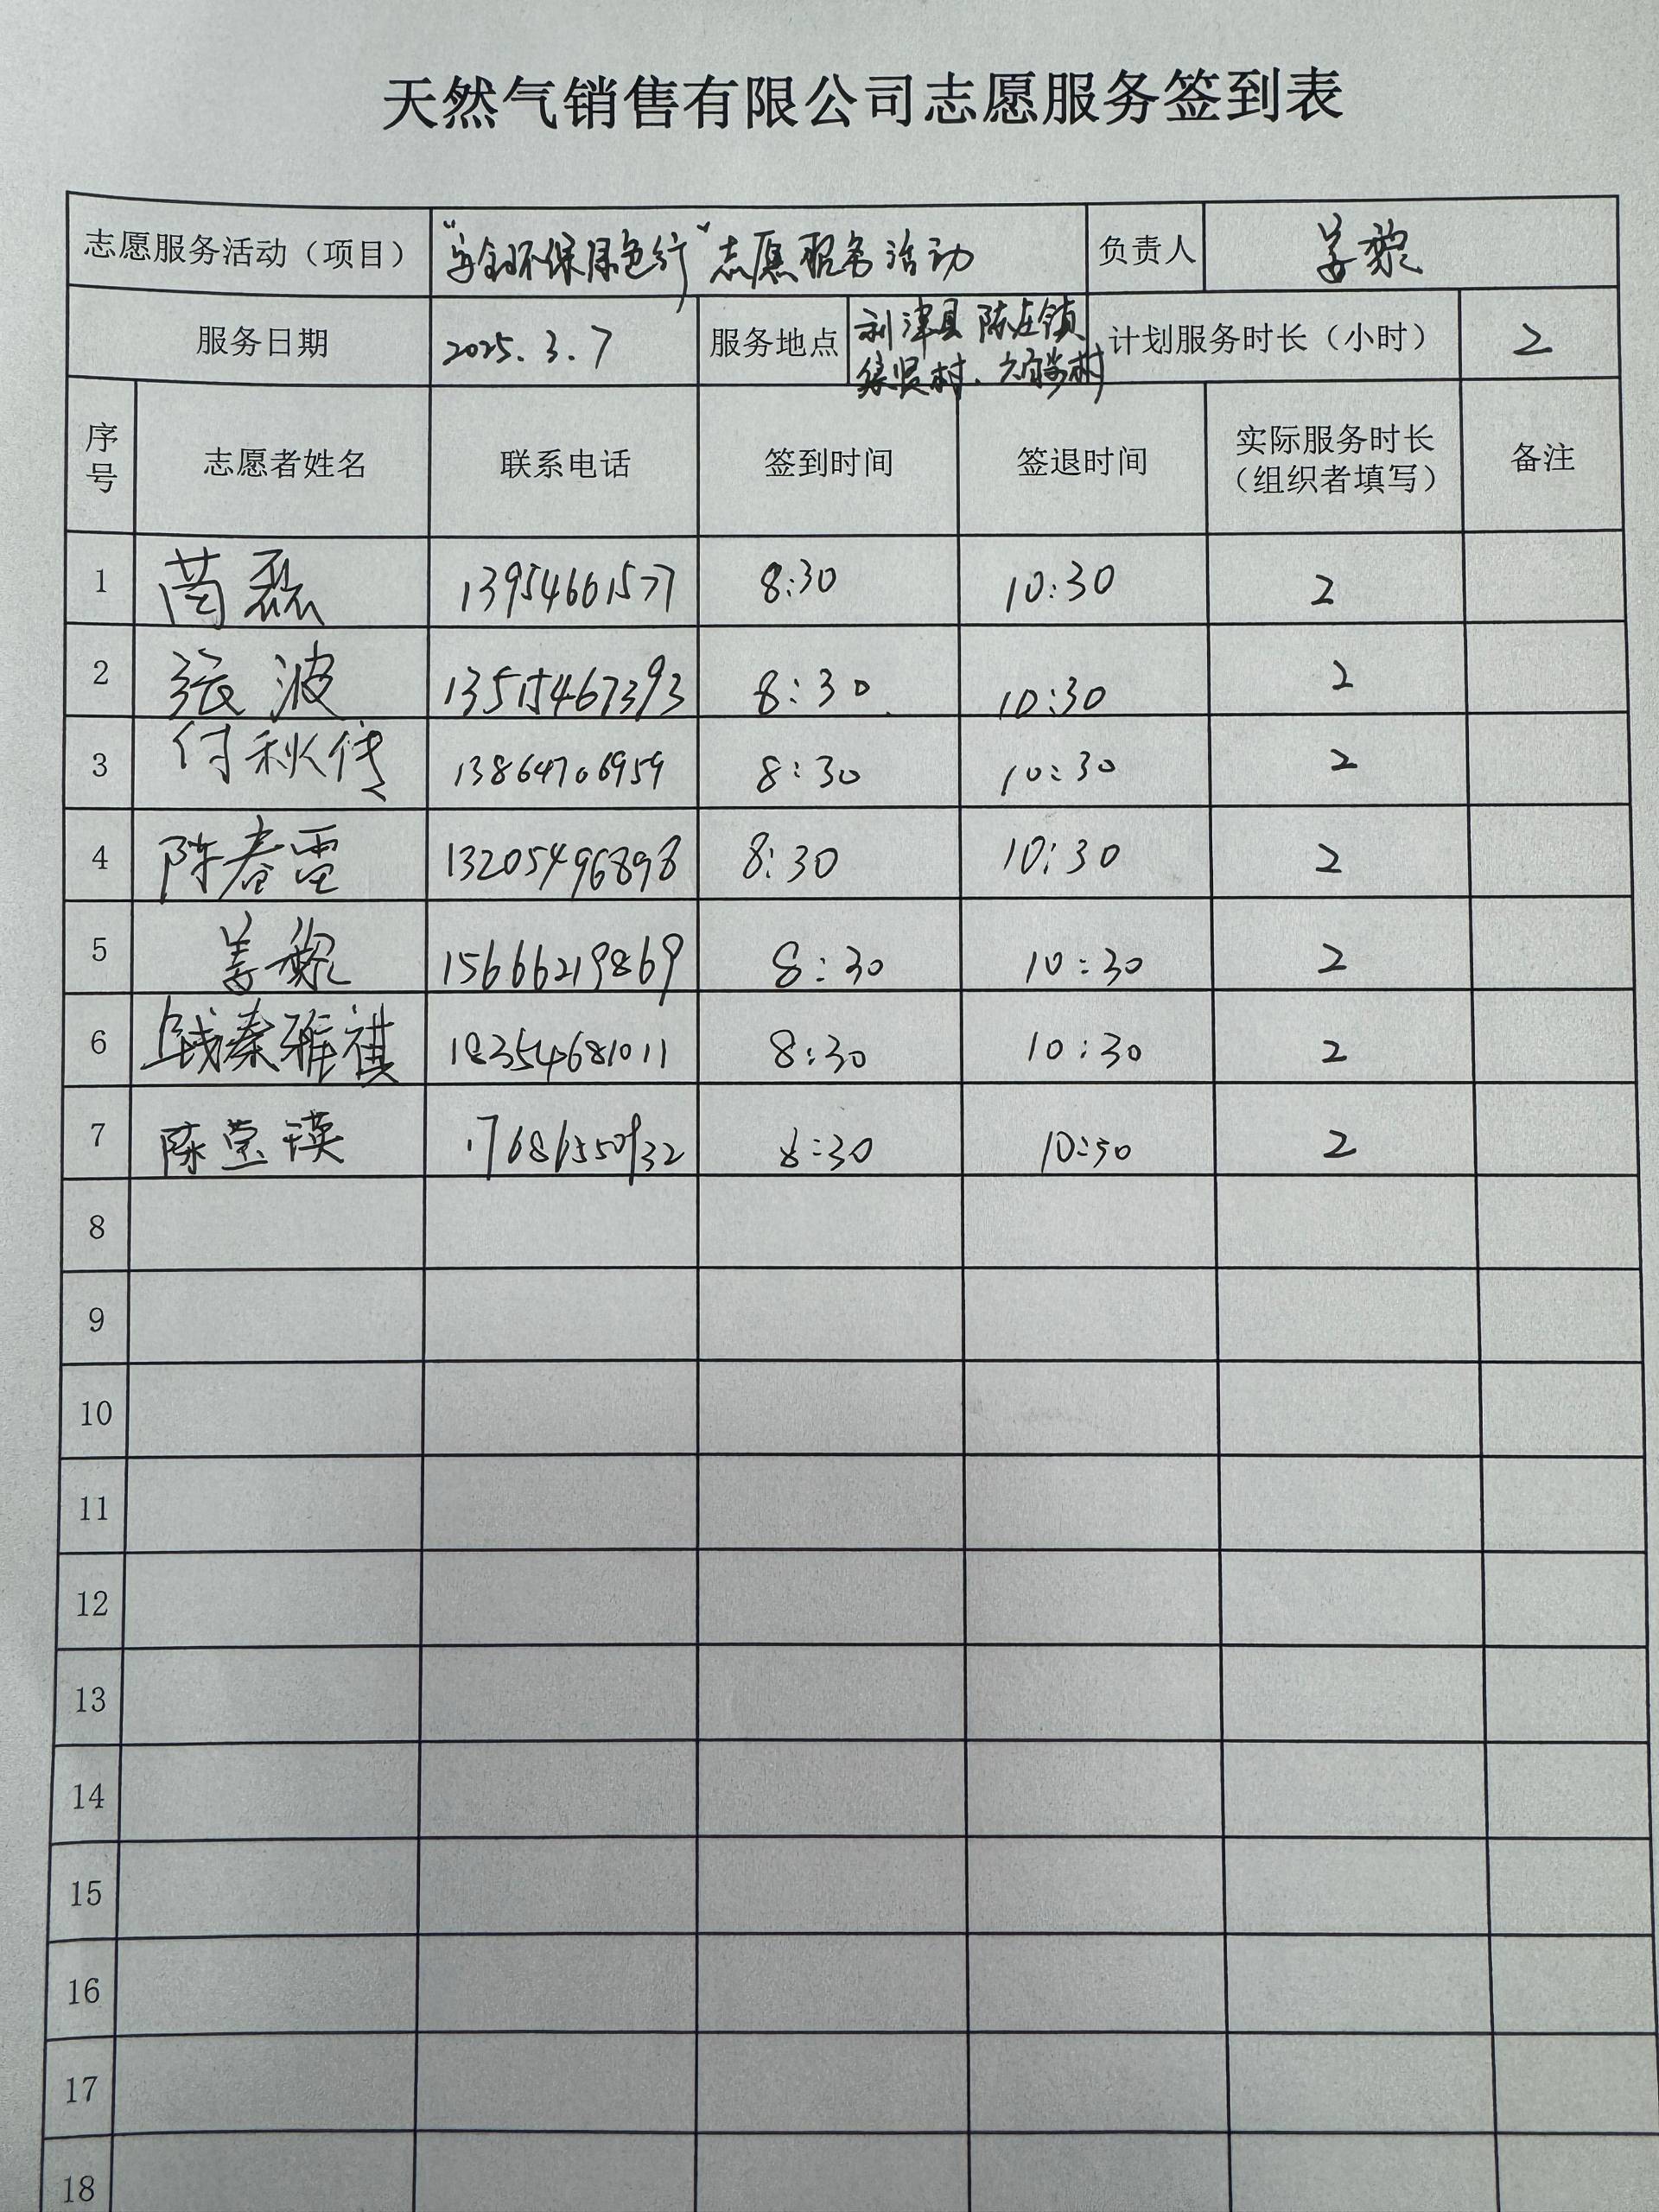 天然气销售有限公司志愿服务签到表
志愿服务活动（项目） “安全环保绿色行”志愿服务活动 负责人 姜
服务日期 2025.3.7 服务地点 利津县陈庄镇 村、 村 计划服务时长（小时） 2
序号 志愿者姓名 联系电话 签到时间 签退时间 实际服务时长（组织者填写） 备注
1 苗磊 13954661577 8:30 10:30 2
2 张波 13515467393 8:30 10:30 2
3 付秋 13864706959 8:30 10:30 2
4 陈春雷 13205496898 8:30 10:30 2
5 姜 15666219869 8:30 10:30 2
6 秦雅祺 18354681011 8:30 10:30 2
7 陈莹瑛 8:30 10:30 2
8
9
10
11
12
13
14
15
16
17
18